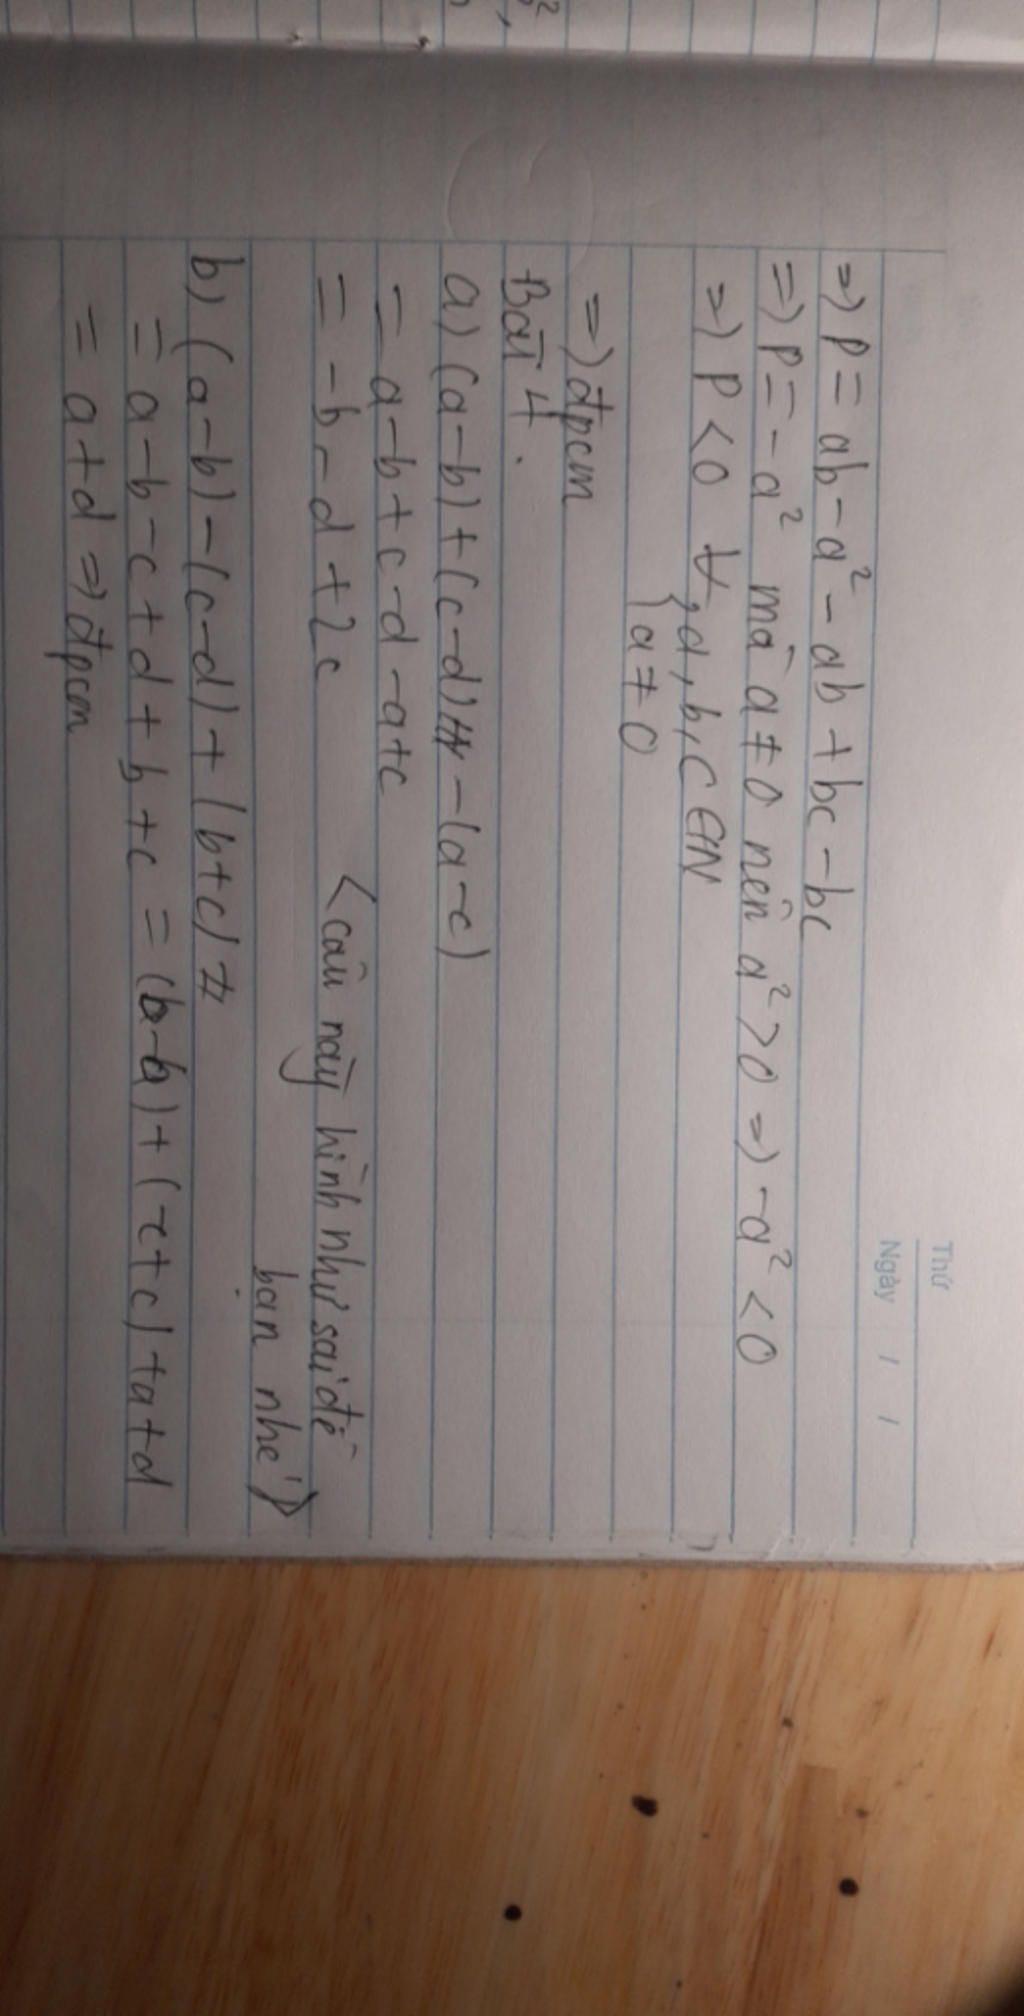 Thứ
Ngày / /
=> P = ab - a² - ab + bc - bc
=> P = - a² mà a ≠ 0 nên a² > 0 => - a² < 0
=> P < 0 ∀ { a, b, c ∈ IN
{ a ≠ 0
=> đpcm
Bài 4.
a) (a-b) + (c-d) - (a-c)
= a - b + c - d - a + c
= - b - d + 2c
<câu này hình như sai đề
bạn nhé>
b) (a-b) - (c-d) + (b+c)
= a - b - c + d + b + c = (b-b) + (-c+c) + a + d
= a + d => đpcm